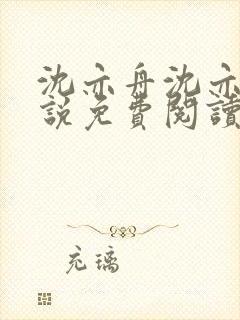 沈亦舟沈亦
說免費閱讀
充璃